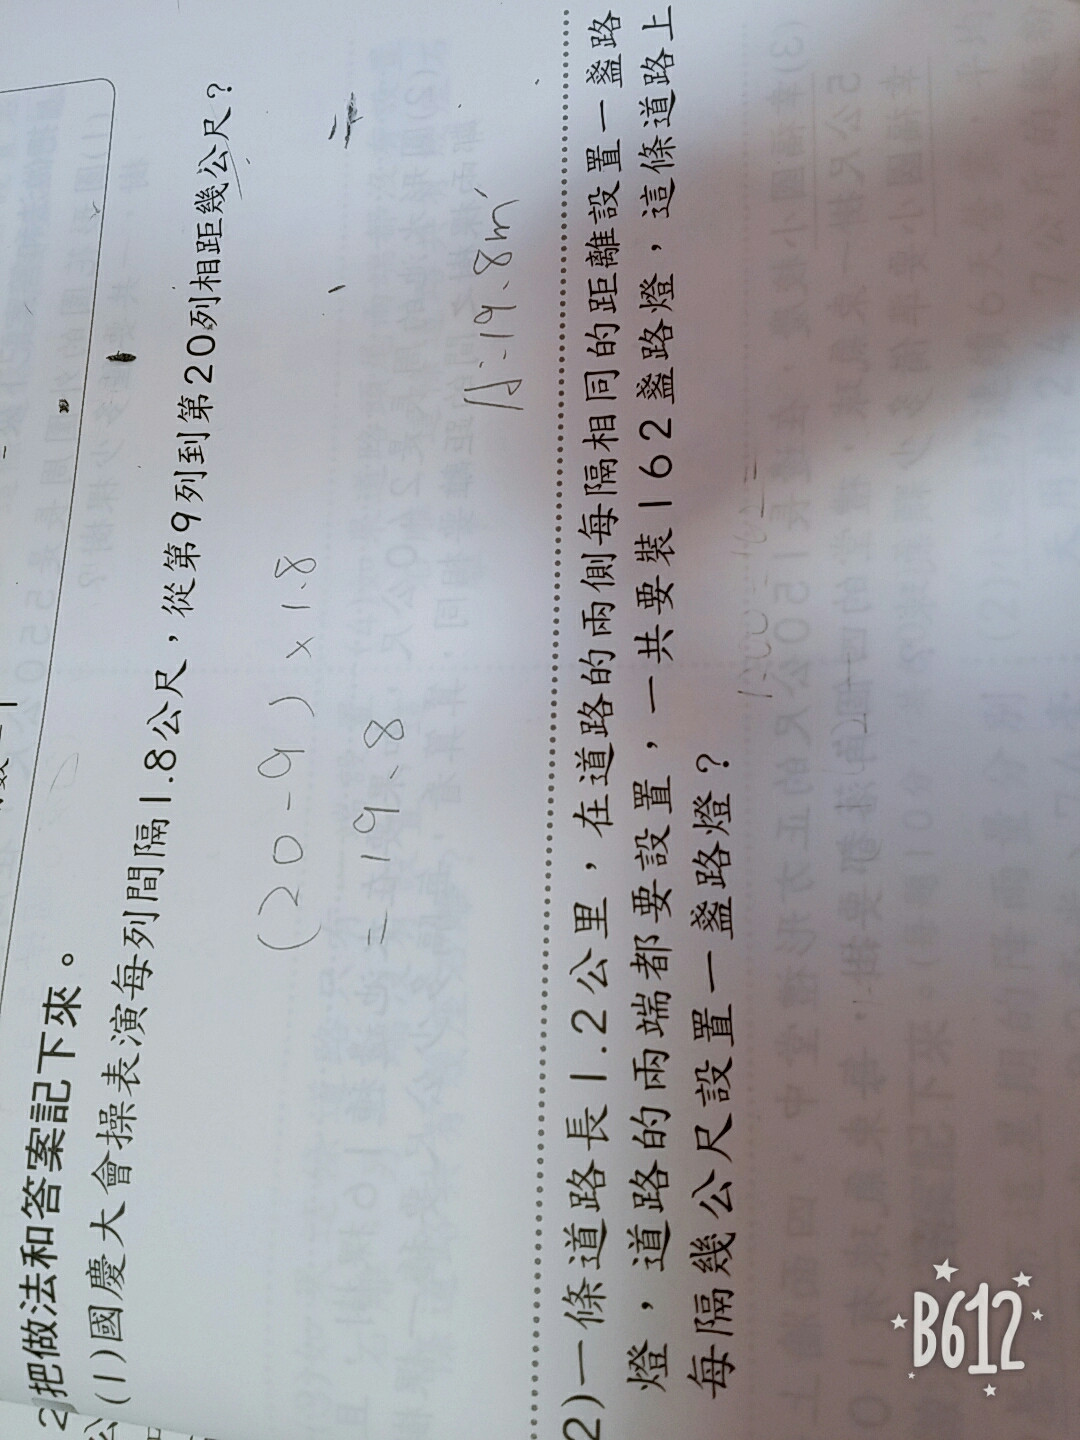 2 把做法和答案記下來。
(1)國慶大會操表演每列間隔1.8公尺，從第9列到第20列相距幾公尺？
(20-9)×1.8
=19.8
A:19.8m
2)一條道路長1.2公里，在道路的兩側每隔相同的距離設置一盞路
燈，道路的兩端都要設置，一共要裝162盞路燈，這條道路上
每隔幾公尺設置一盞路燈？
B612